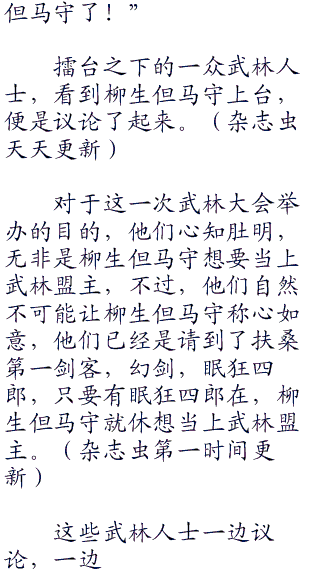 但马守了！”
擂台之下的一众武林人
士，看到柳生但马守上台，
便是议论了起来。（杂志虫
天天更新）
对于这一次武林大会举
办的目的，他们心知肚明，
无非是柳生但马守想要当上
武林盟主，不过，他们自然
不可能让柳生但马守称心如
意，他们已经是请到了扶桑
第一剑客，幻剑，眠狂四
郎，只要有眠狂四郎在，柳
生但马守就休想当上武林盟
主。（杂志虫第一时间更
新）
这些武林人士一边议
论，一边